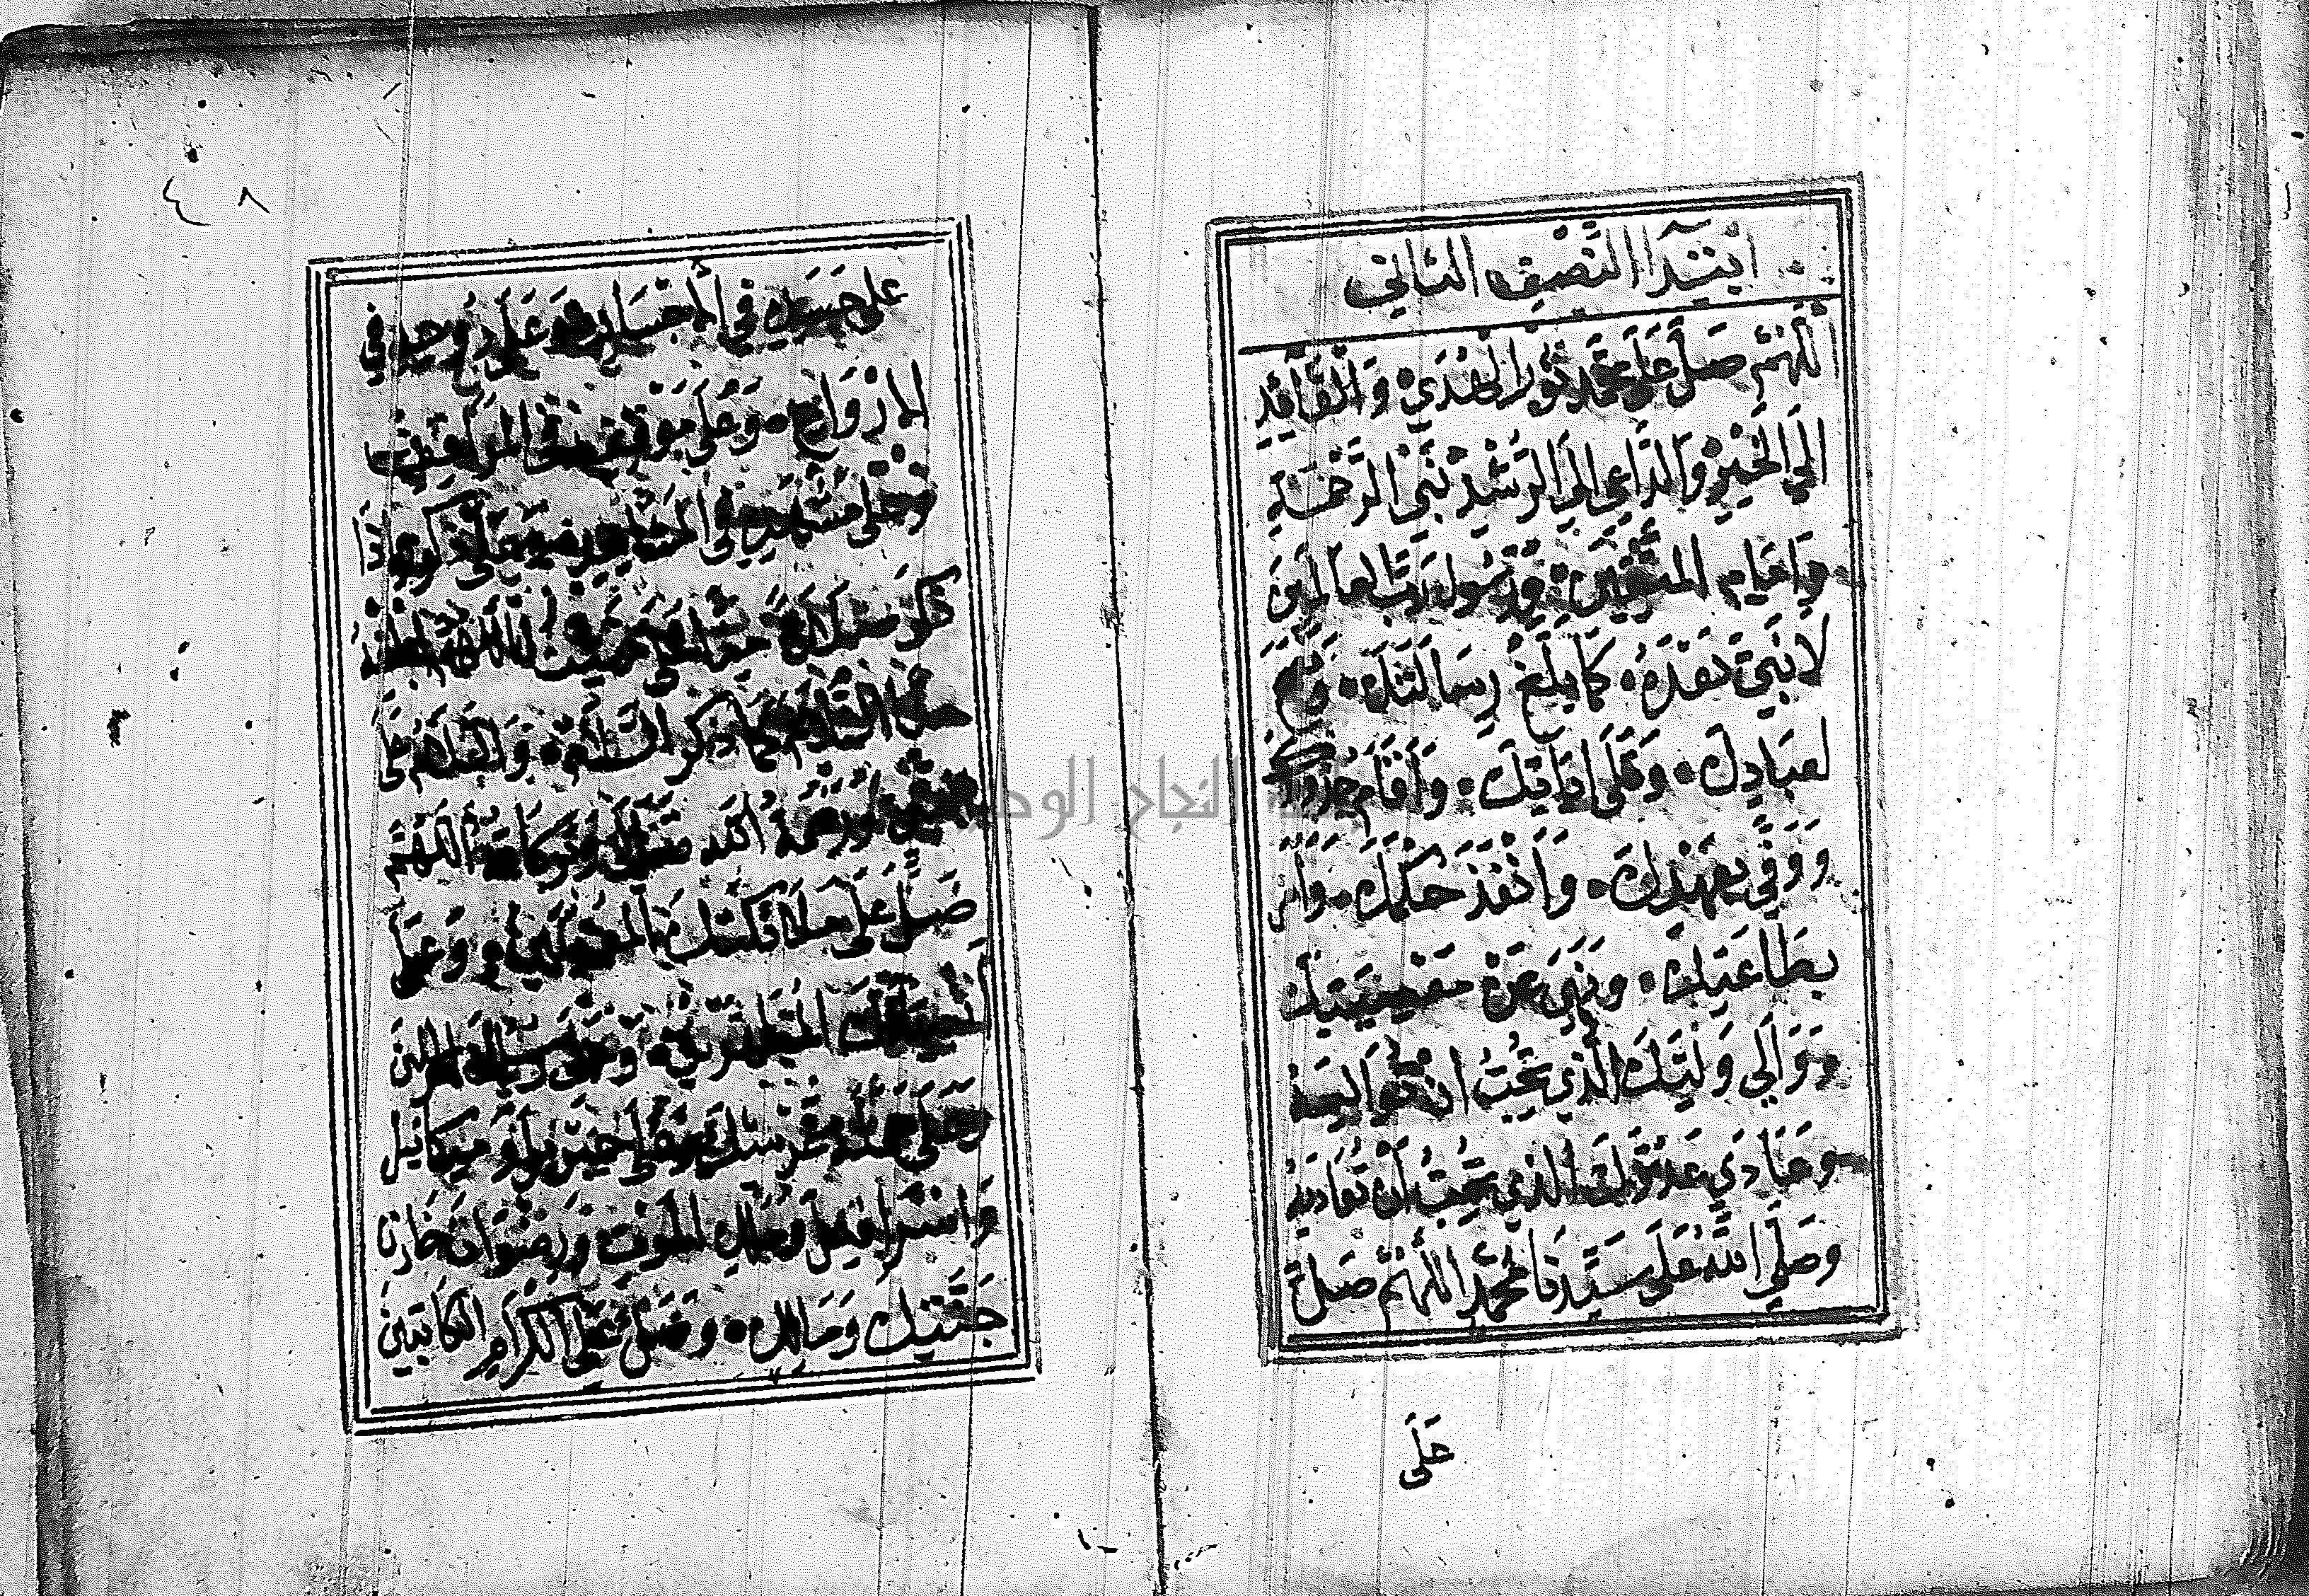 ابتدا النصف الثاني
اَللّٰهُمَّ صَلِّ عَلَى مُحَمَّدٍ نُورِ الْهُدَى وَالْقَائِدِ
اِلَى الْخَيْرِ وَالدَّاعِي اِلَى الرُّشْدِ نَبِيِّ الرَّحْمَةِ
وَاِمَامِ الْمُتَّقِينَ وَرَسُولِ رَبِّ الْعَالَمِينَ
لَا نَبِيَّ بَعْدَهُ كَمَا بَلَّغَ رِسَالَتَكَ وَنَصَحَ
لِعِبَادِكَ وَتَلَى اٰيَاتِكَ وَاَقَامَ حُدُودَكَ
وَوَفَّى بِعَهْدِكَ وَاَنْفَذَ حُكْمَكَ وَاَمَرَ
بِطَاعَتِكَ وَنَهَى عَنْ مَعْصِيَتِكَ
وَوَالَى وَلِيَّكَ الَّذِي تُحِبُّ اَنْ تُوَالِيَهُ
وَعَادَى عَدُوَّكَ الَّذِي تُحِبُّ اَنْ تُعَادِيَهُ
وَصَلَّى اللّٰهُ عَلَى سَيِّدِنَا مُحَمَّدٍ اَللّٰهُمَّ صَلِّ
عَلَى
٤٨
عَلَى جَسَدِهِ فِي الْاَجْسَادِ وَعَلَى رُوحِهِ فِي
الْاَرْوَاحِ وَعَلَى مَوْقِفِهِ فِي الْمَوَاقِفِ
وَعَلَى مَشْهَدِهِ فِي الْمَشَاهِدِ وَعَلَى ذِكْرِهِ اِذَا
ذُكِرَ صَلَاةً مِنَّا عَلَى نَبِيِّنَا اَللّٰهُمَّ اَبْلِغْهُ
مِنَّا السَّلَامَ كَمَا ذُكِرَ السَّلَامُ وَالسَّلَامُ عَلَى
النَّبِيِّ وَرَحْمَةُ اللّٰهِ تَعَالَى وَبَرَكَاتُهُ اَللّٰهُمَّ
صَلِّ عَلَى مَلَائِكَتِكَ الْمُقَرَّبِينَ وَعَلَى
اَنْبِيَائِكَ الْمُطَهَّرِينَ وَعَلَى رُسُلِكَ الْمُرْسَلِينَ
وَعَلَى حَمَلَةِ عَرْشِكَ وَعَلَى جِبْرِيلَ وَمِيكَائِيلَ
وَاِسْرَافِيلَ وَمَلَكِ الْمَوْتِ وَرِضْوَانَ خَازِنِ
جَنَّتِكَ وَمَالِكٍ وَصَلِّ عَلَى الْكِرَامِ الْكَاتِبِينَ